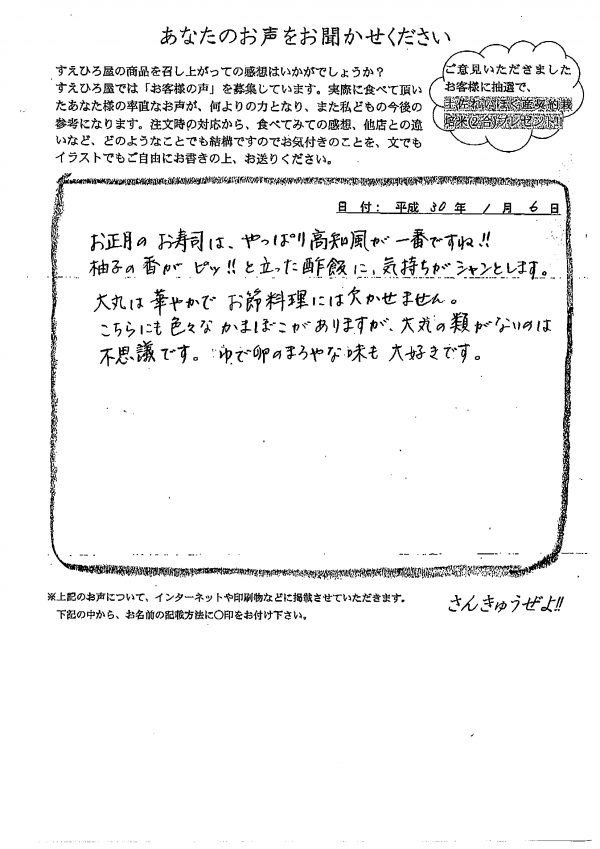 あなたのお声をお聞かせください
すえひろ屋の商品を召し上がっての感想はいかがでしょうか？
すえひろ屋では「お客様の声」を募集しています。実際に食べて頂い
たあなた様の率直なお声が、何よりの力となり、また私どもの今後の
参考になります。注文時の対応から、食べてみての感想、他店との違
いなど、どのようなことでも結構ですのでお気付きのことを、文でも
イラストでもご自由にお書きの上、お送りください。
ご意見いただきました
お客様に抽選で、
日 付： 平成 30 年 1 月 6 日
お正月の お寿司は、やっぱり高知風が一番ですね!!
柚子の香が ピッ!!と立った酢飯に、気持ちがシャンとします。
大丸は華やかで お節料理には欠かせません。
こちらにも色々な かまぼこがありますが、大丸の類がないのは
不思議です。 ゆで卵のまろやかな味も 大好きです。
※上記のお声について、インターネットや印刷物などに掲載させていただきます。
下記の中から、お名前の記載方法に〇印をお付け下さい。
さんきゅうぜよ!!